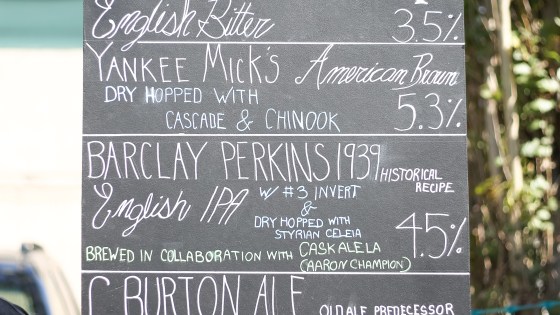 English Bitter 3.5%
YANKEE MICK'S American Brown
DRY HOPPED WITH
CASCADE & CHINOOK 5.3%
BARCLAY PERKINS 1939 HISTORICAL RECIPE
English IPA W/ #3 INVERT
&
DRY HOPPED WITH
STYRIAN CELEIA 4.5%
BREWED IN COLLABORATION WITH CASKALELA
(AARON CHAMPION)
C BURTON ALE OLD ALE PREDECESSOR